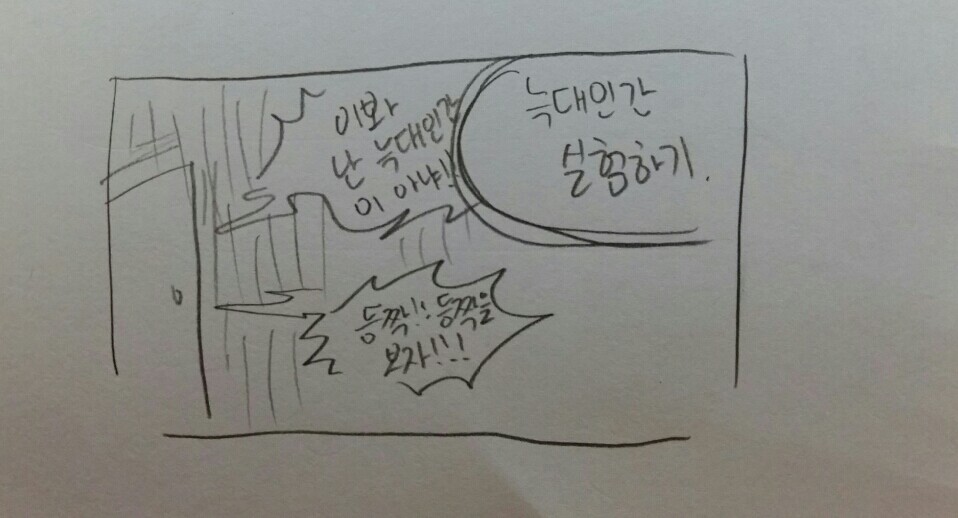 늑대인간
실험하기.
이봐
난 늑대인간
이 아냐!!
등짝!! 등짝을
보자!!!